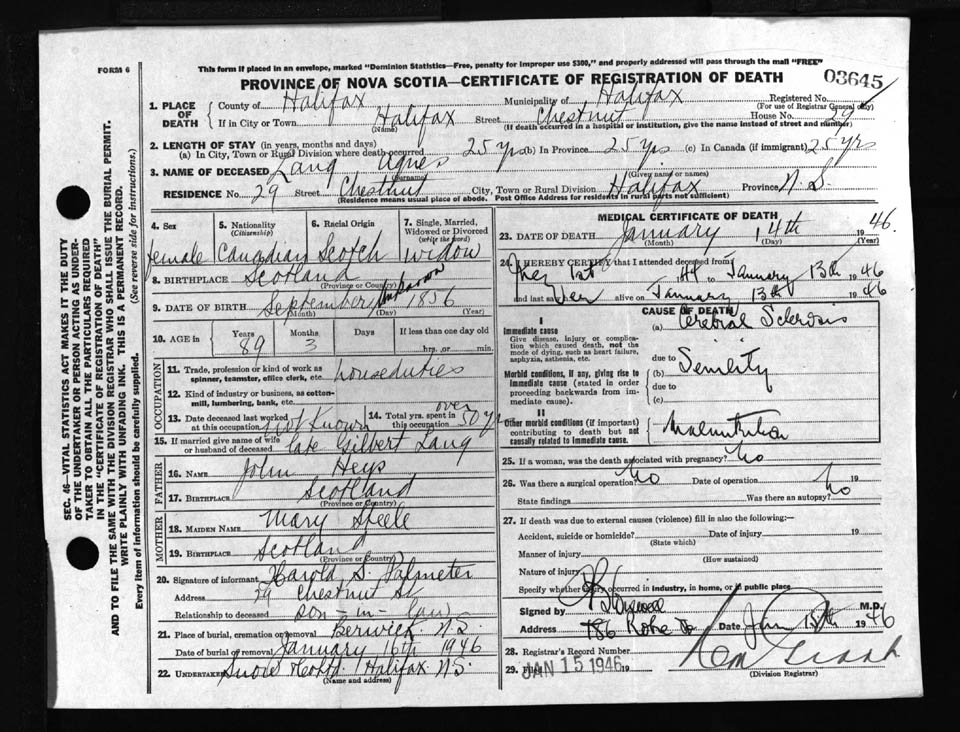 FORM 6
This form if placed in an envelope, marked "Dominion Statistics—Free, penalty for improper use $300," and properly addressed will pass through the mail "FREE"
PROVINCE OF NOVA SCOTIA—CERTIFICATE OF REGISTRATION OF DEATH
03645
1. PLACE OF DEATH County of Halifax Municipality of Halifax Registered No. (For use of Registrar General only)
If in City or Town Halifax (Name) Street Chestnut House No. 29
(If death occurred in a hospital or institution, give the name instead of street and number)
2. LENGTH OF STAY (in years, months and days)
(a) In City, Town or Rural Division where death occurred 25 yrs (b) In Province 25 yrs (c) In Canada (if immigrant) 25 yrs
3. NAME OF DECEASED Lang Agnes
(Surname) (Given name or names)
RESIDENCE No. 29 Street Chestnut City, Town or Rural Division Halifax Province N.S.
(Residence means usual place of abode. Post Office Address for residents in rural parts not sufficient)
4. Sex female
5. Nationality (Citizenship) Canadian
6. Racial Origin Scotch
7. Single, Married, Widowed or Divorced (write the word) widow
8. BIRTHPLACE Scotland
(Province or Country)
9. DATE OF BIRTH September unknown 1856
(Month) (Day) (Year)
10. AGE in Years 89 Months 3 Days If less than one day old hrs. or min.
OCCUPATION
11. Trade, profession or kind of work as spinner, teamster, office clerk, etc. houseduties
12. Kind of industry or business, as cotton-mill, lumbering, bank, etc.
13. Date deceased last worked at this occupation not Known
14. Total yrs. spent in this occupation over 50 yrs
15. If married give name of wife or husband of deceased late Gilbert Lang
FATHER
16. NAME John Heys
17. BIRTHPLACE Scotland
(Province or Country)
MOTHER
18. MAIDEN NAME Mary Steele
19. BIRTHPLACE Scotland
(Province or Country)
20. Signature of informant Harold S. Palmeter
Address 29 Chestnut St.
Relationship to deceased son-in-law
21. Place of burial, cremation or removal Berwick N.S.
Date of burial or removal January 16th 1946
22. UNDERTAKER Snow & Co Ltd. Halifax N.S.
(Name and address)
MEDICAL CERTIFICATE OF DEATH
23. DATE OF DEATH January 14th 1946.
(Month) (Day) (Year)
24. I HEREBY CERTIFY that I attended deceased from
1st 1944 to January 13th 1946
and last saw her alive on January 13th 1946
CAUSE OF DEATH
I
Immediate cause
Give disease, injury or complication which caused death, not the mode of dying, such as heart failure, asphyxia, asthenia, etc.
(a) Cerebral Sclerosis
due to
Morbid conditions, if any, giving rise to immediate cause (stated in order proceeding backwards from immediate cause).
(b) Senility
due to
(c)
II
Other morbid conditions (if important) contributing to death but not causally related to immediate cause.
Malnutrition
25. If a woman, was the death associated with pregnancy? No
26. Was there a surgical operation? No Date of operation 19
State findings Was there an autopsy? No
27. If death was due to external causes (violence) fill in also the following:—
Accident, suicide or homicide? Date of injury 19
(State which)
Manner of injury
(How sustained)
Nature of injury
Specify whether injury occurred in industry, in home, or in public place
Signed by M.D.
Address 186 Date Jan 15th 1946
28. Registrar's Record Number
29. Filed JAN 15 1946 19
(Division Registrar)
SEC. 46—VITAL STATISTICS ACT MAKES IT THE DUTY OF THE UNDERTAKER OR PERSON ACTING AS UNDERTAKER TO OBTAIN ALL THE PARTICULARS REQUIRED IN THE "CERTIFICATE OF REGISTRATION OF DEATH"
AND TO FILE THE SAME WITH THE DIVISION REGISTRAR WHO SHALL ISSUE THE BURIAL PERMIT.
WRITE PLAINLY WITH UNFADING INK. THIS IS A PERMANENT RECORD.
Every item of information should be carefully supplied. (See reverse side for instructions.)